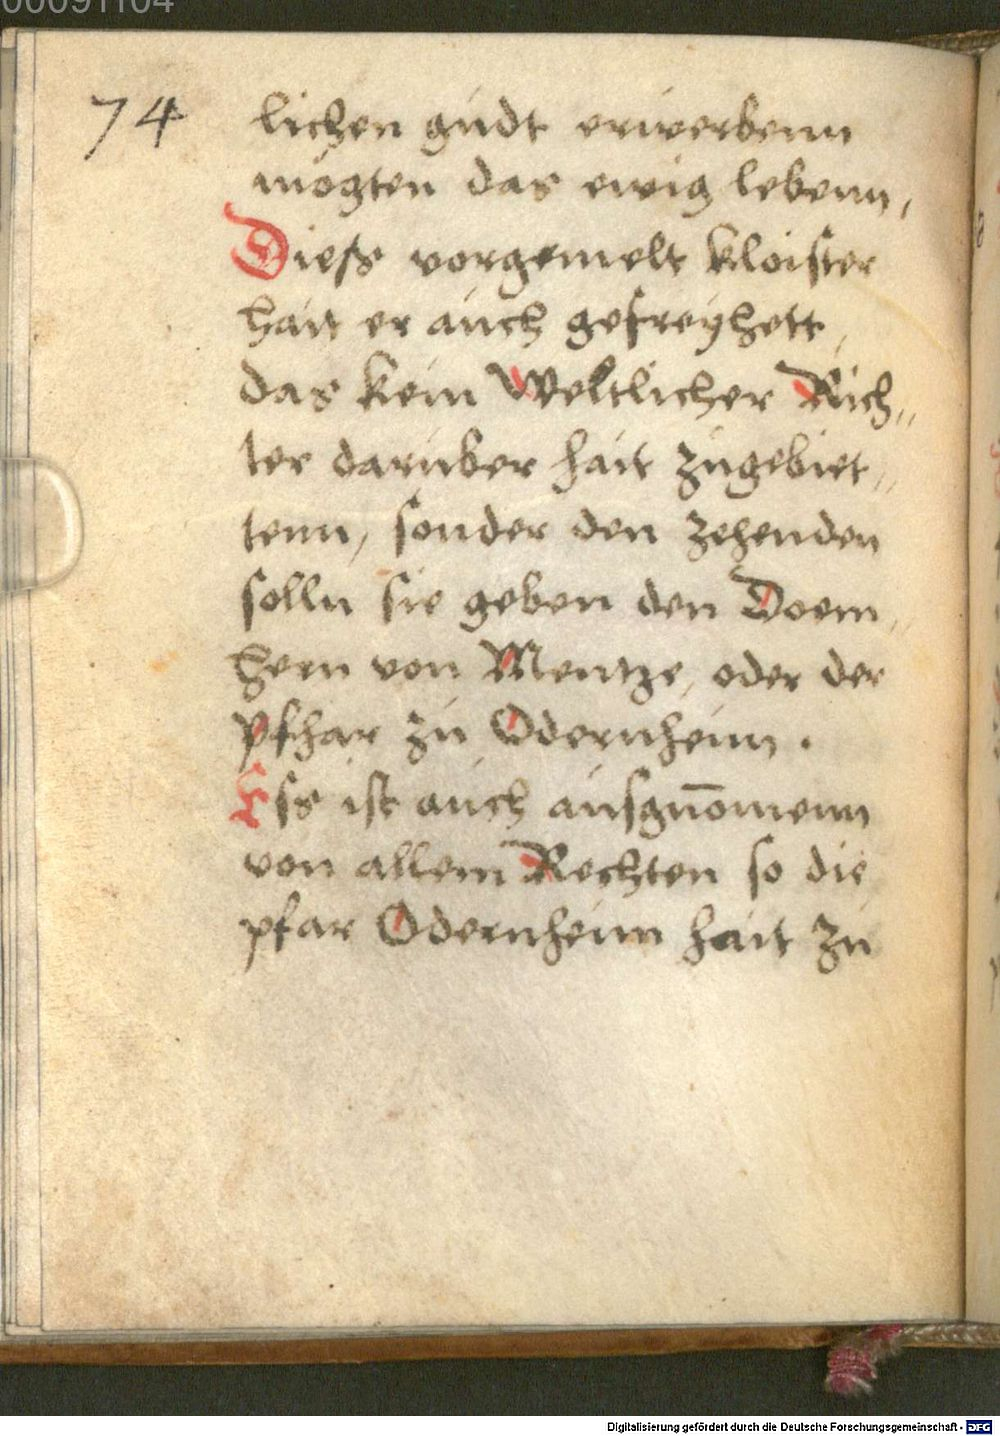 00091104
74
lichen gudt erwerbenn
mogten das ewig lebenn,
Diess vorgemelt kloister
hait er auch gefreyhett,
das kein Weltlicher Rich„
ter daruber hait zugebiet„
tenn, sonder den zehenden
solln sie geben den Doem„
hern von Mentze, oder der
pfhar zu Odernheim .
Ess ist auch ausgnōmenn
von allem Rechten so die
pfar Odernheim hait zu
Digitalisierung gefördert durch die Deutsche Forschungsgemeinschaft - DFG